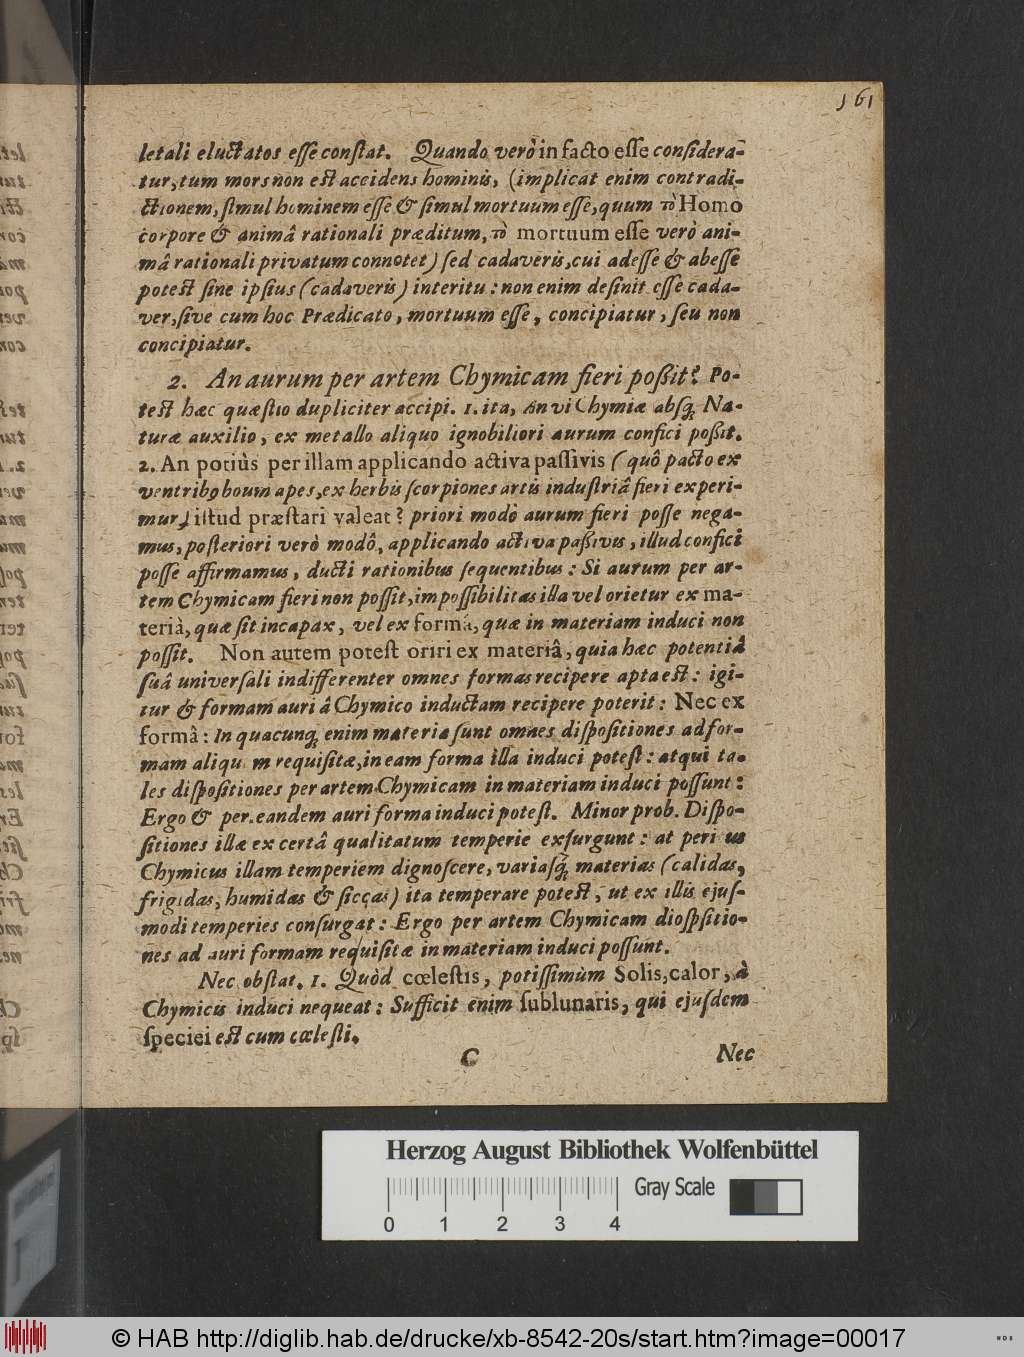 161
letali eluctatos esse constat. Quando verò in facto esse considera-
tur, tum mors non est accidens hominis, (implicat enim contradi-
ctionem, simul hominem esse & simul mortuum esse, quum τὸ Homo
corpore & animâ rationali præditum, τὸ mortuum esse verò ani-
mâ rationali privatum connotet) sed cadaveris, cui adesse & abesse
potest sine ipsius (cadaveris) interitu: non enim desinit esse cada-
ver, sive cum hoc Prædicato, mortuum esse, concipiatur, seu non
concipiatur.
2. An aurum per artem Chymicam fieri poßit? Po-
test hæc quæstio dupliciter accipi. 1. ita, An vi Chymiæ absq; Na-
turæ auxilio, ex metallo aliquo ignobiliori aurum confici poßit.
2. An potiùs per illam applicando activa passivis (quô pacto ex
ventribo boum apes, ex herbis scorpiones artis industriâ fieri experi-
mur) istud præstari valeat? priori modô aurum fieri posse nega-
mus, posteriori verò modô, applicando activa paßivis, illud confici
posse affirmamus, ducti rationibus sequentibus: Si aurum per ar-
tem Chymicam fieri non possit, impossibilitas illa vel orietur ex ma-
teriâ, quæ sit incapax, vel ex formâ, quæ in materiam induci non
possit. Non autem potest oriri ex materiâ, quia hæc potentiâ
suâ universali indifferenter omnes formas recipere apta est: igi-
tur & formam auri â Chymico inductam recipere poterit: Nec ex
formâ: In quacunq; enim materia sunt omnes dispositiones ad for-
mam aliquam requisitæ, in eam forma illa induci potest: atqui ta-
les dispositiones per artem Chymicam in materiam induci possunt:
Ergo & per eandem auri forma induci potest. Minor prob. Dispo-
sitiones illæ ex certâ qualitatum temperie exsurgunt: at peritus
Chymicus illam temperiem dignoscere, variasq; materias (calidas,
frigidas, humidas & siccas) ita temperare potest, ut ex illis ejus-
modi temperies consurgat: Ergo per artem Chymicam diospsitio-
nes ad auri formam requisitæ in materiam induci possunt.
Nec obstat. 1. Quòd cœlestis, potissimùm Solis, calor, à
Chymicis induci nequeat: Sufficit enim sublunaris, qui ejusdem
speciei est cum cœlesti.
C Nec
Herzog August Bibliothek Wolfenbüttel
Gray Scale
0 1 2 3 4
© HAB http://diglib.hab.de/drucke/xb-8542-20s/start.htm?image=00017